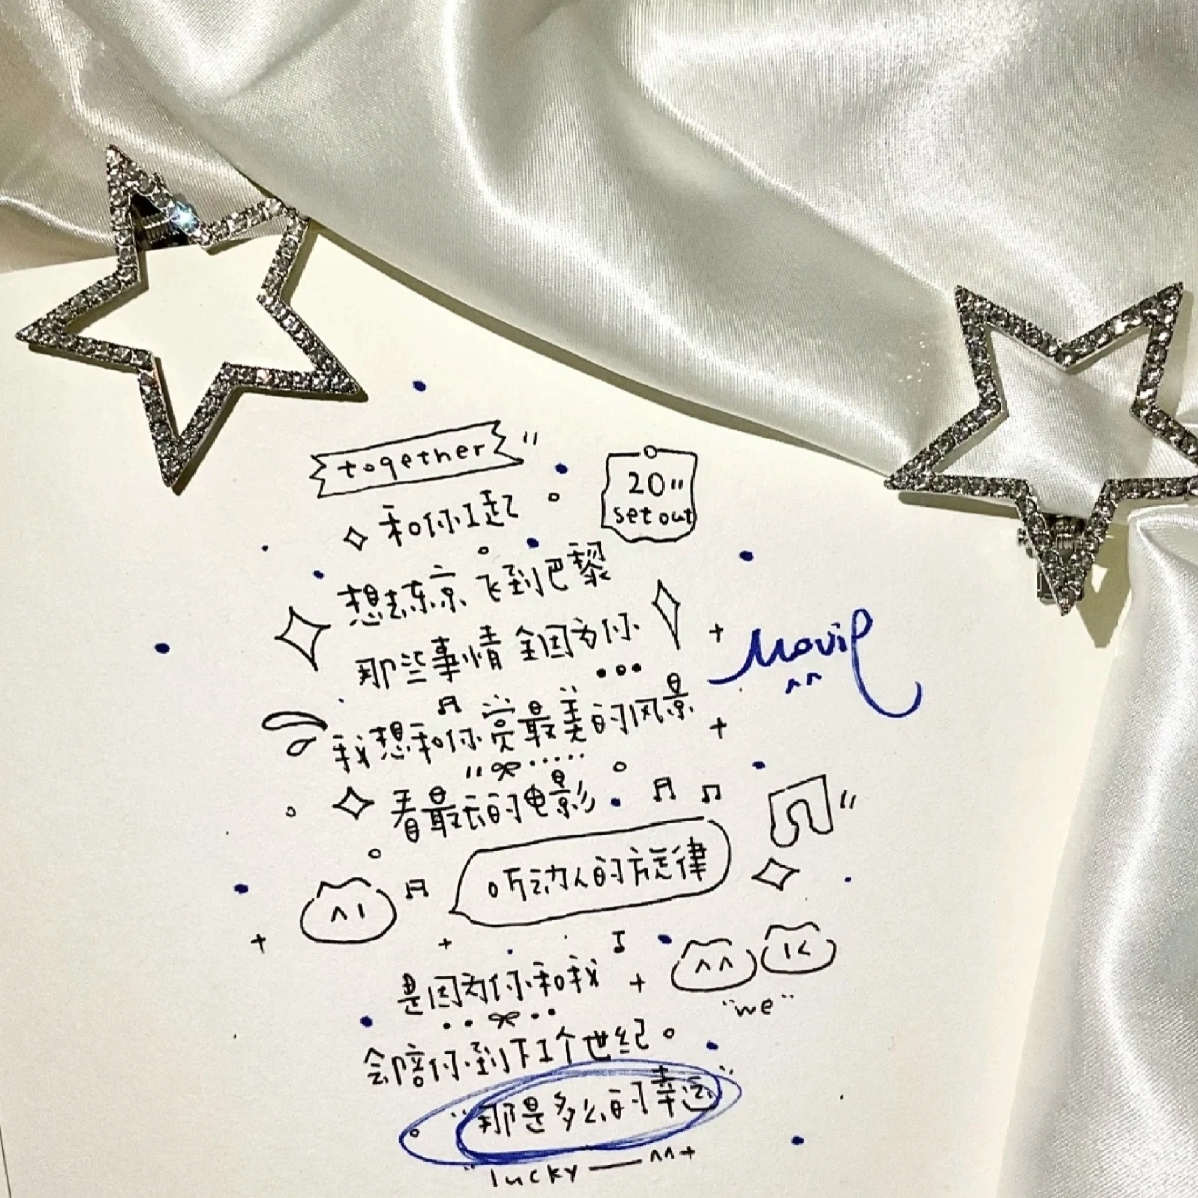 together
20"
set out
和你一起
想去东京 飞到巴黎
那些事情 全因为你
Movie
我想和你赏最美的风景
看最长的电影
听动人的旋律
是因为你和我
"we"
会陪你到下个世纪。
"那是多么的幸运"
"lucky